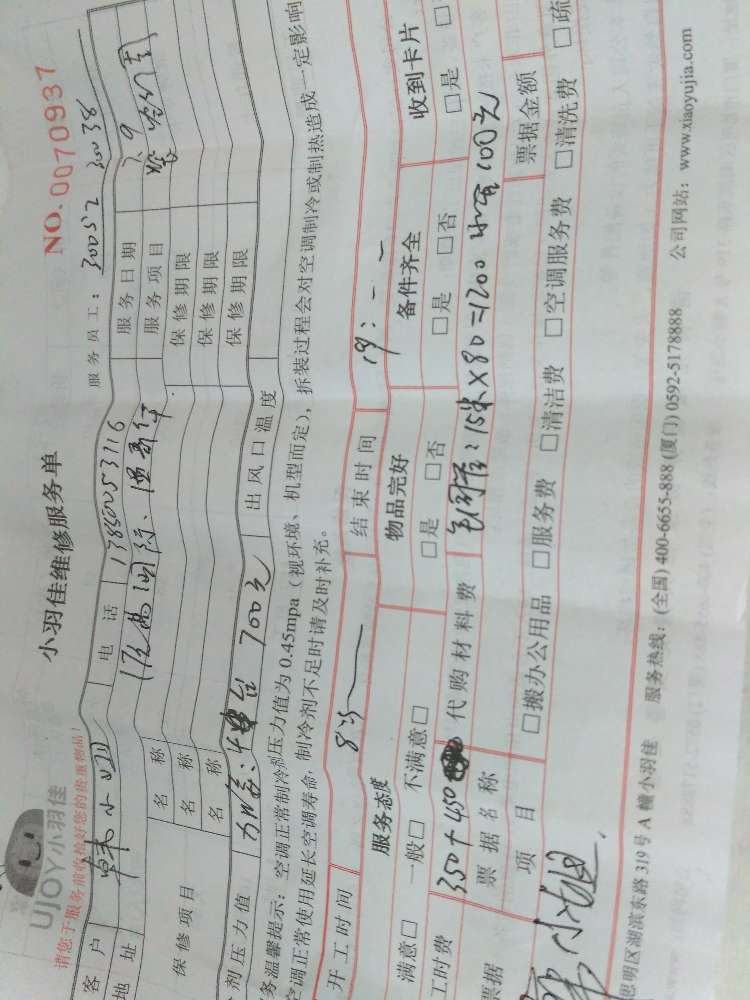 UJOY小羽佳
小羽佳维修服务单
NO. 0070937
请您于服务前收拾好您的贵重物品!
服务员工: 30052 30038
客户 韩小姐 电话 13850053116 服务日期 3.9
地址 服务项目
保修项目 名称 保修期限
名称 保修期限
名称 保修期限
剂压力值 700元 出风口温度
务温馨提示: 空调正常制冷剂压力值为 0.45mpa (视环境、机型而定), 拆装过程会对空调制冷或制热造成一定影响
空调正常使用延长空调寿命, 制冷剂不足时请及时补充。
开工时间 8:30 结束时间 19:
服务态度 物品完好 备件齐全 收到卡片
满意□ 一般□ 不满意□ □是 □否 □是 □否 □是
工时费 350+450 代购材料费 铜管: 15米×80=1200 100元
票据 票据名称 票据金额
项目 □搬办公用品 □服务费 □清洁费 □空调服务费 □清洗费 □疏
韩小姐
思明区湖滨东路 319号 A 幢小羽佳 服务热线: (全国) 400-6655-888 (厦门) 0592-5178888 公司网站: www.xiaoyujia.com